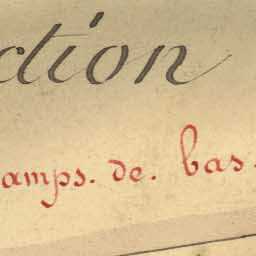 ction
amps. de. bas.